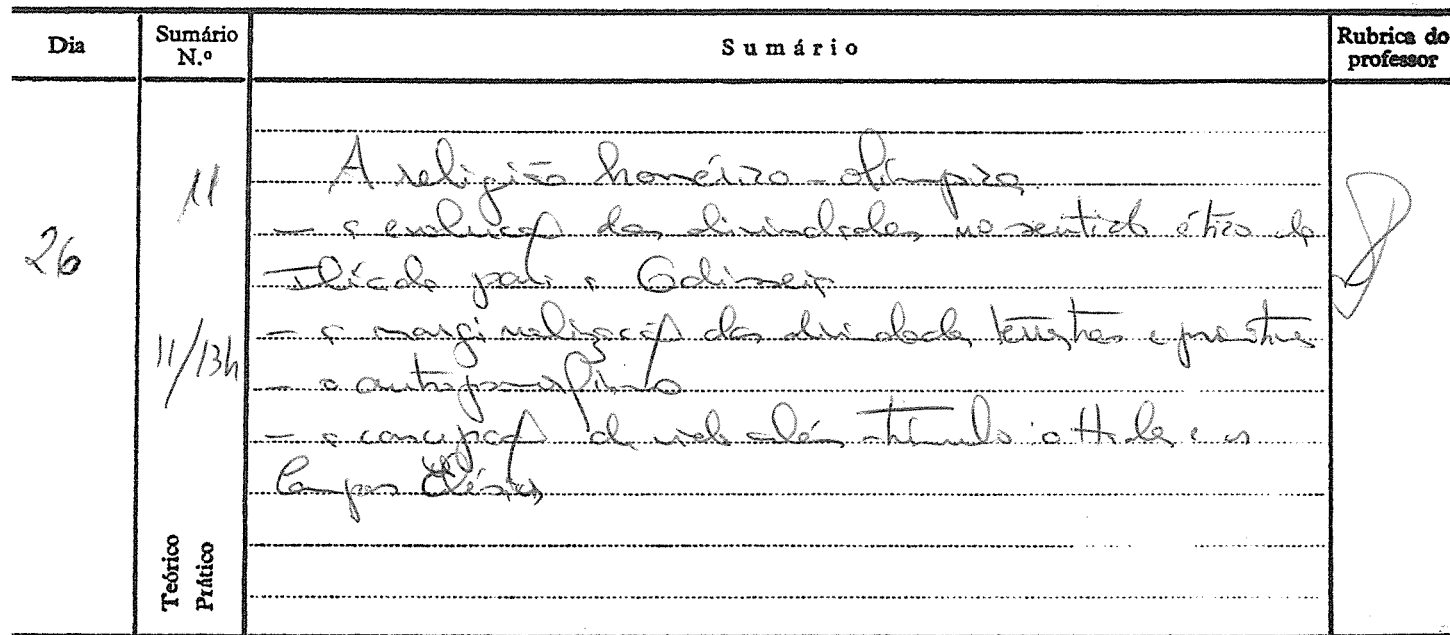 Dia
Sumário N.º
Sumário
Rubrica do professor
26
11
11/13h
Teórico
Prático
A religião homérico-olímpica
- a evolução das divindades no sentido ético da
Ilíada para a Odisseia
- a marginalização das divindades terrestres e
- o antropomorfismo
- a concepção de vida além-túmulo: o Hades e os
Campos Elísios